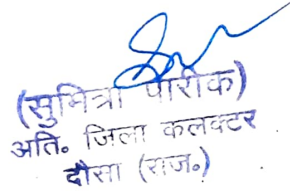 (सुमित्रा पारीक)
अति० जिला कलक्टर
दौसा (राज०)